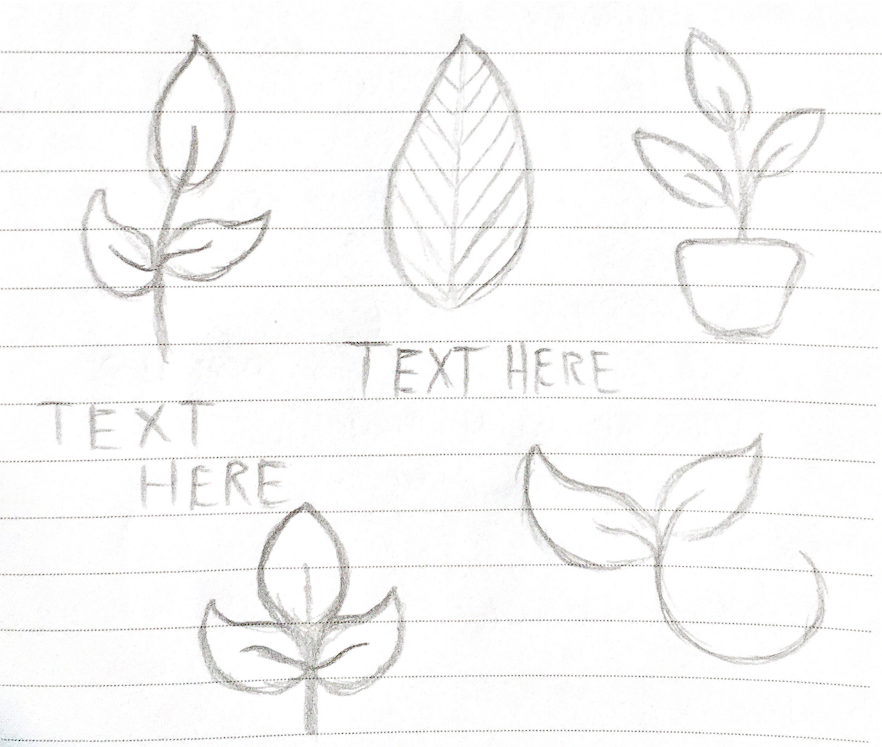 TEXT HERE
TEXT
HERE